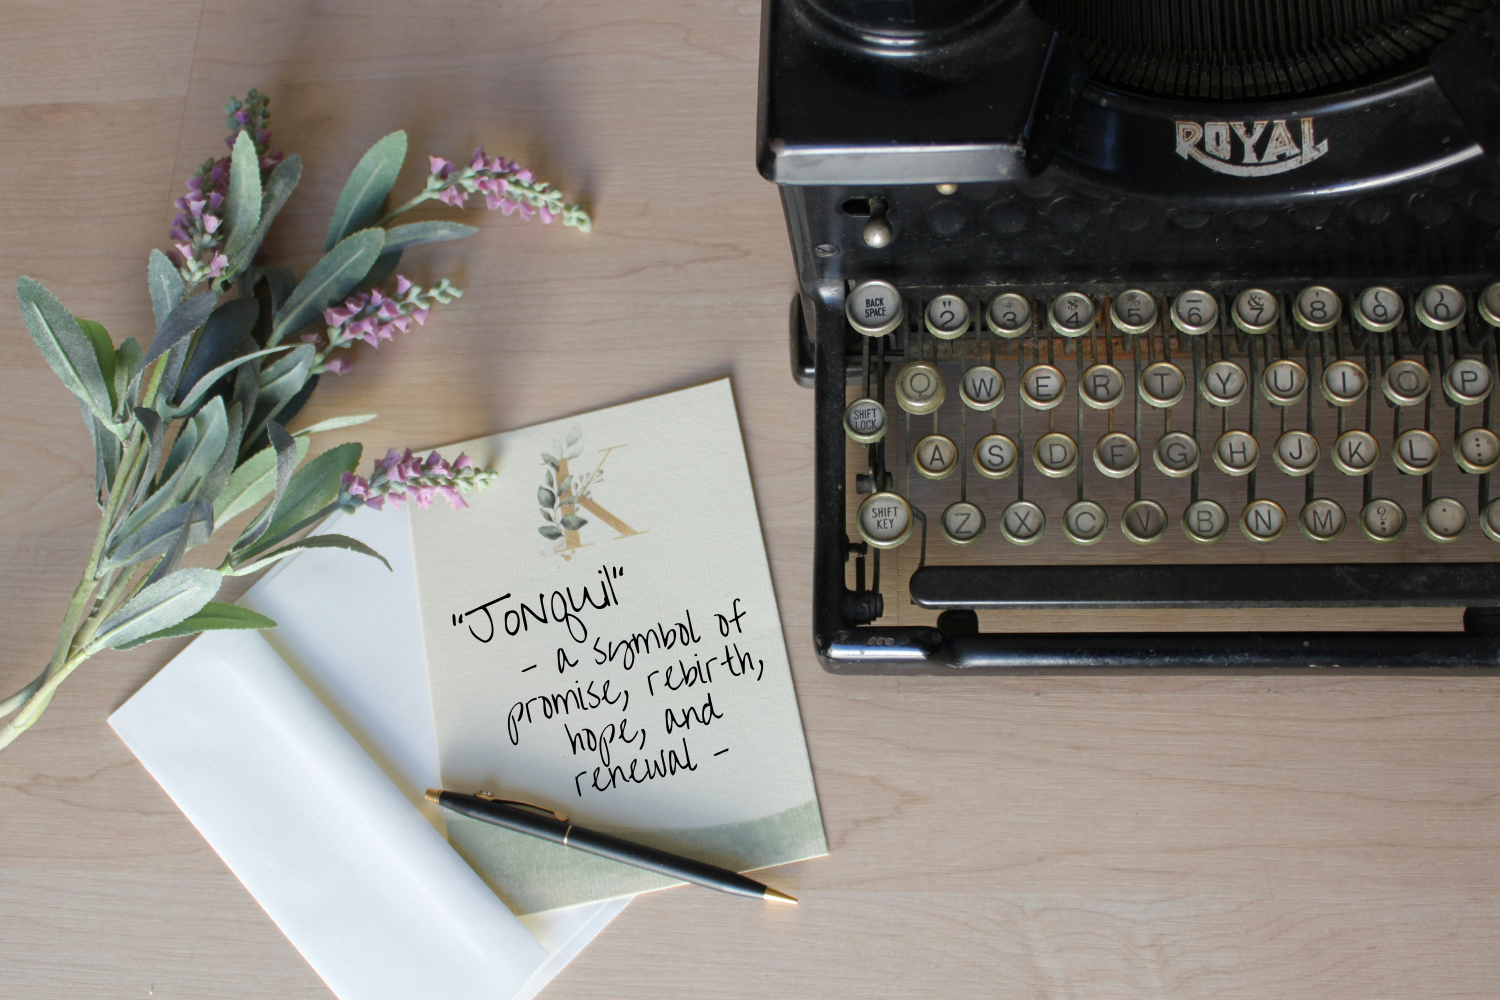 K
"Jonquil"
- a symbol of
promise, rebirth,
hope, and
renewal -
ROYAL
BACK SPACE " 2 3 $ 4 % 5 _ 6 & 7 ' 8 ( 9 ) 0
Q W E R T Y U I O P
SHIFT LOCK A S D F G H J K L :
SHIFT KEY Z X C V B N M ? .